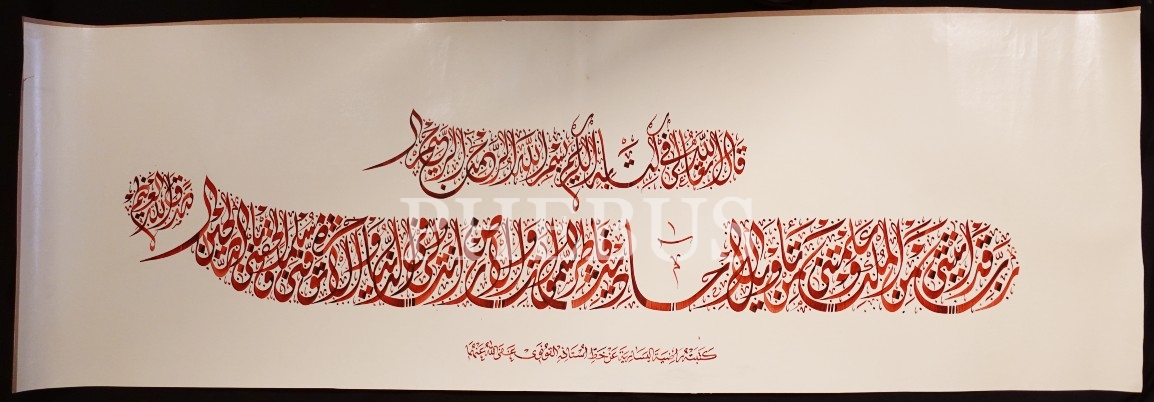 قال الله تعالى في كتابه الكريم بسم الله الرحمن الرحيم
رب قد آتيتني من الملك وعلمتني من تأويل الأحاديث فاطر السماوات والأرض أنت وليي في الدنيا والآخرة توفني مسلما وألحقني بالصالحين
صدق الله العظيم
PHEBUS
كتبته عن خط عفى الله عنهما